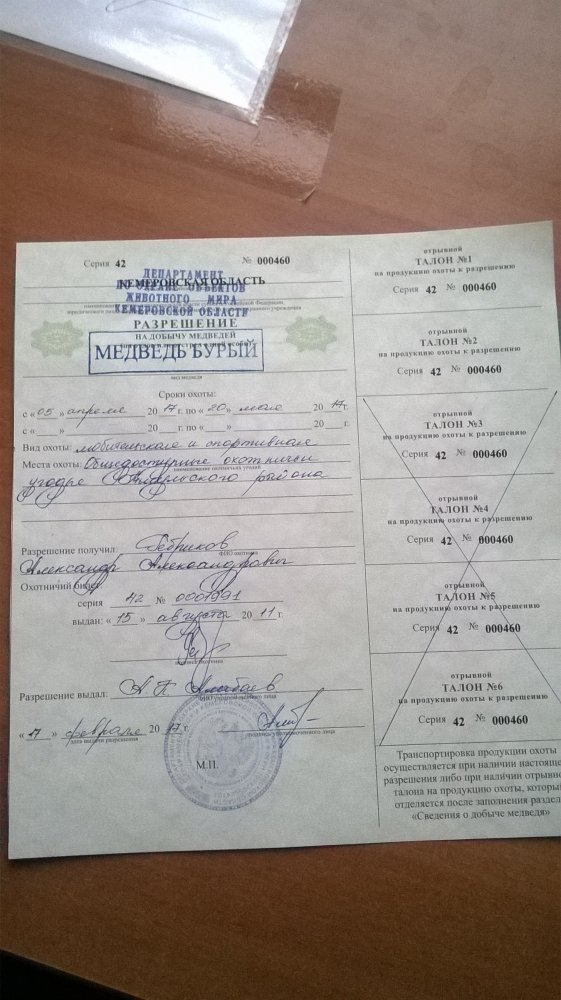 Серия 42 № 000460
ДЕПАРТАМЕНТ
КЕМЕРОВСКАЯ ОБЛАСТЬ
ПО ОХРАНЕ ОБЪЕКТОВ
ЖИВОТНОГО МИРА
КЕМЕРОВСКОЙ ОБЛАСТИ
РАЗРЕШЕНИЕ
НА ДОБЫЧУ МЕДВЕДЕЙ
МЕДВЕДЬ БУРЫЙ
вид медведя
Сроки охоты:
с «05» апреля 2017г. по «20» мая 2017г.
с «___»___ 20__ г. по «___»___ 20__ г.
Вид охоты: любительская и спортивная
Места охоты: Общедоступные охотничьи
наименование охотничьих угодий
угодья района
Разрешение получил:
ФИО охотника
Александр Александрович
Охотничий билет
серия 42 № 0001991
выдан: «15» августа 2011 г.
подпись охотника
Разрешение выдал: А П
ФИО уполномоченного лица
«17» февраля 2017г.
дата выдачи разрешения
подпись уполномоченного лица
М.П.
отрывной
ТАЛОН №1
на продукцию охоты к разрешению
Серия 42 № 000460
отрывной
ТАЛОН №2
на продукцию охоты к разрешению
Серия 42 № 000460
отрывной
ТАЛОН №3
на продукцию охоты к разрешению
Серия 42 № 000460
отрывной
ТАЛОН №4
на продукцию охоты к разрешению
Серия 42 № 000460
отрывной
ТАЛОН №5
на продукцию охоты к разрешению
Серия 42 № 000460
отрывной
ТАЛОН №6
на продукцию охоты к разрешению
Серия 42 № 000460
Транспортировка продукции охоты
осуществляется при наличии настояще
разрешения либо при наличии отрывно
талона на продукцию охоты, который
отделяется после заполнения раздел
«Сведения о добыче медведя»